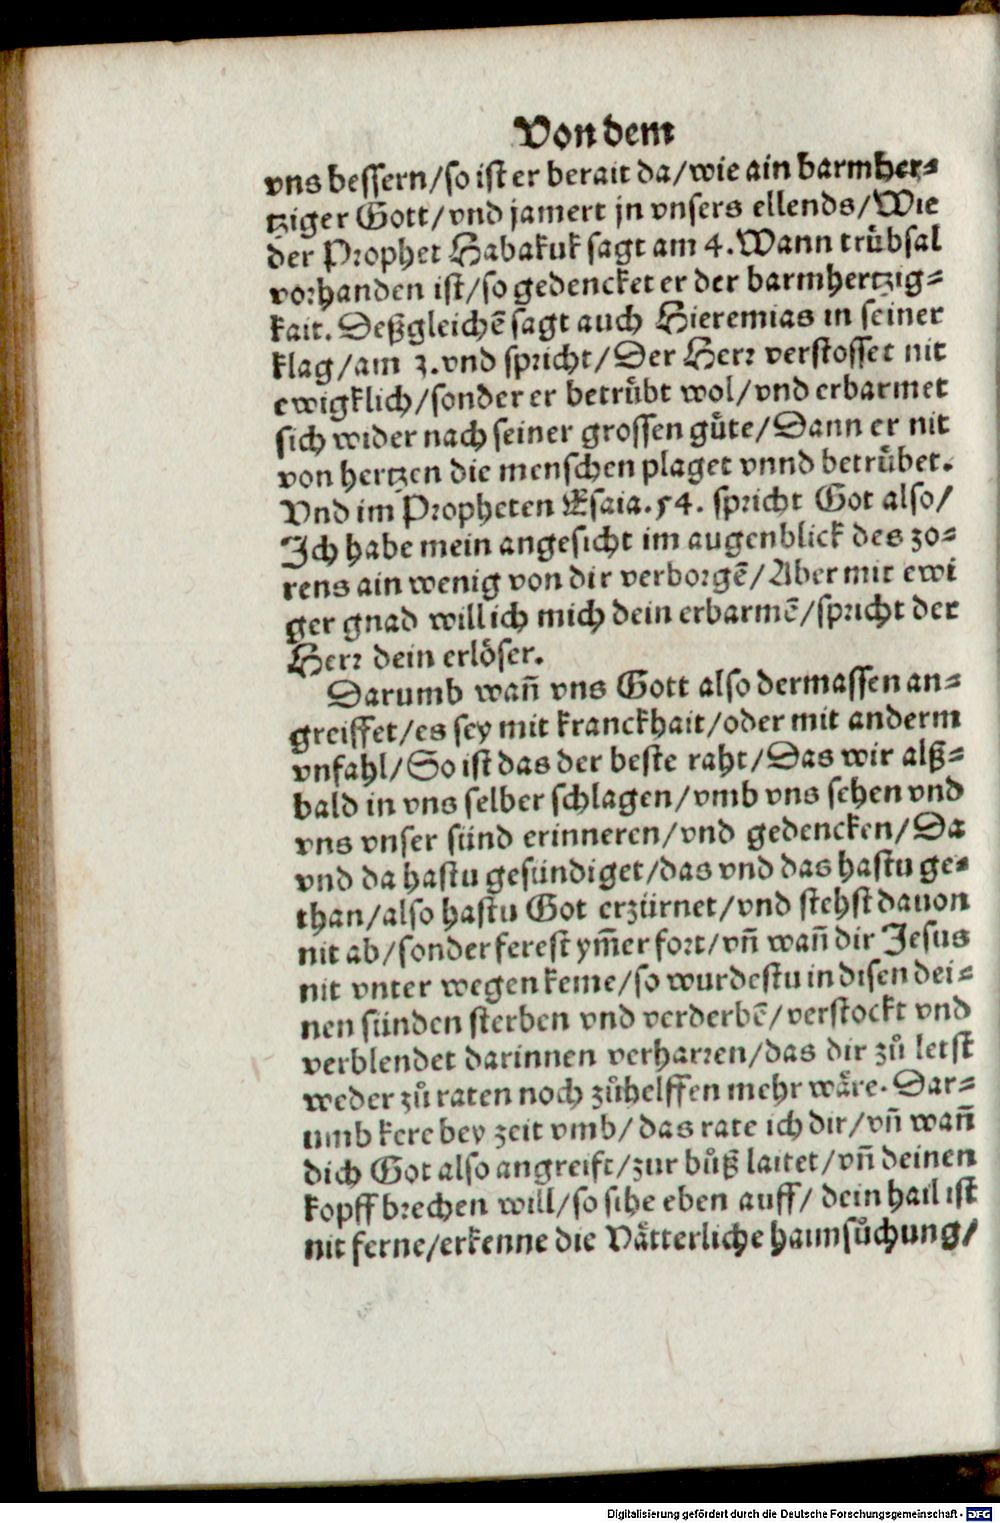 Von dem
vns bessern/so ist er berait da/wie ain barmher⸗
tziger Gott/vnd jamert jn vnsers ellends/Wie
der Prophet Habakuk sagt am 4. Wann truͤbsal
vorhanden ist/so gedencket er der barmhertzig⸗
kait. Deßgleichē sagt auch Hieremias in seiner
klag/am 3. vnd spricht/Der Herr verstosset nit
ewigklich/sonder er betruͤbt wol/vnd erbarmet
sich wider nach seiner grossen guͤte/Dann er nit
von hertzen die menschen plaget vnnd betruͤbet.
Vnd im Propheten Esaia. 54. spricht Got also/
Ich habe mein angesicht im augenblick des zo⸗
rens ain wenig von dir verborgē/Aber mit ewi
ger gnad will ich mich dein erbarmē/spricht der
Herr dein erlöser.
Darumb wañ vns Gott also dermassen an⸗
greiffet/es sey mit kranckhait/oder mit anderm
vnfahl/So ist das der beste raht/Das wir alß⸗
bald in vns selber schlagen/vmb vns sehen vnd
vns vnser sünd erinneren/vnd gedencken/Da
vnd da hastu gesündiget/das vnd das hastu ge⸗
than/also hastu Got erzürnet/vnd stehst dauon
nit ab/sonder ferest ym̄er fort/vñ wañ dir Jesus
nit vnter wegen keme/so wurdestu in disen dei⸗
nen sünden sterben vnd verderbē/verstockt vnd
verblendet darinnen verharren/das dir zů letst
weder zů raten noch zůhelffen mehr wäre. Dar⸗
umb kere bey zeit vmb/das rate ich dir/vñ wañ
dich Got also angreift/zur bůß laitet/vñ deinen
kopff brechen will/so sihe eben auff/dein hail ist
nit ferne/erkenne die Vätterliche haimsůchung/
Digitalisierung gefördert durch die Deutsche Forschungsgemeinschaft - DFG